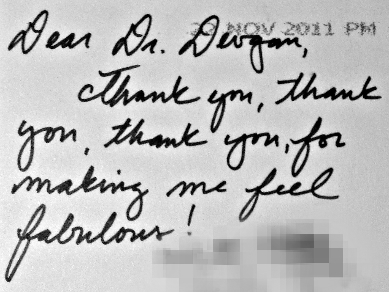 22 NOV 2011 PM
Dear Dr. Devgan,
Thank you, thank
you, thank you, for
making me feel
fabulous!